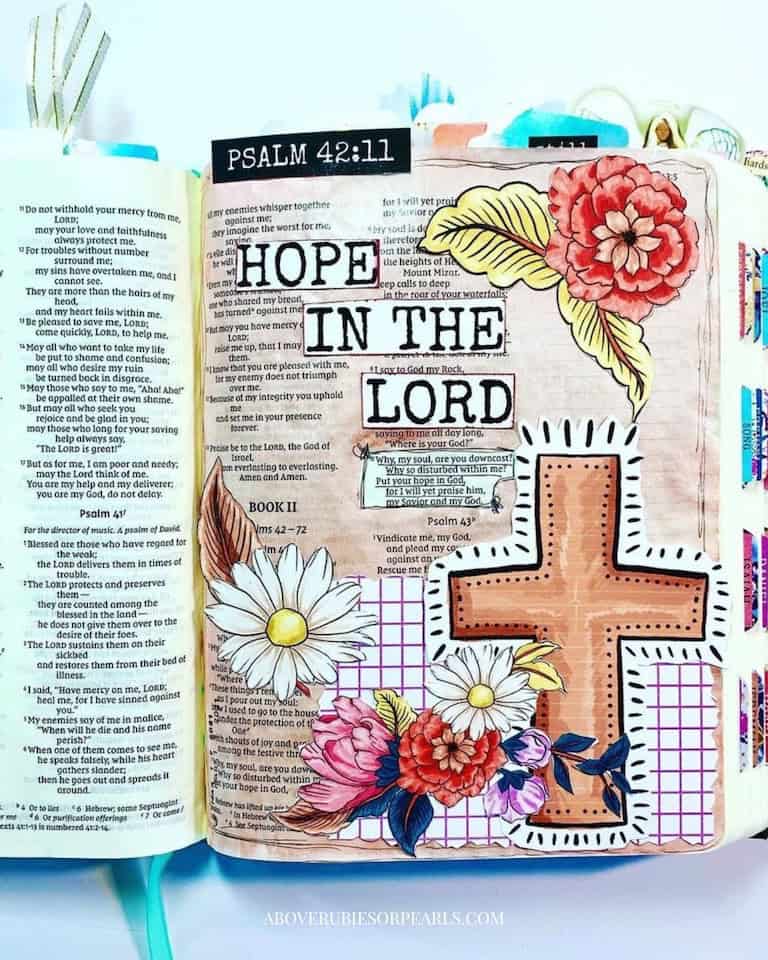 ¹¹Do not withhold your mercy from me,
LORD;
may your love and faithfulness
always protect me.
¹²For troubles without number
surround me;
my sins have overtaken me, and I
cannot see.
They are more than the hairs of my
head,
and my heart fails within me.
¹³Be pleased to save me, LORD;
come quickly, LORD, to help me.
¹⁴May all who want to take my life
be put to shame and confusion;
may all who desire my ruin
be turned back in disgrace.
¹⁵May those who say to me, "Aha! Aha!"
be appalled at their own shame.
¹⁶But may all who seek you
rejoice and be glad in you;
may those who long for your saving
help always say,
"The LORD is great!"
¹⁷But as for me, I am poor and needy;
may the Lord think of me.
You are my help and my deliverer;
you are my God, do not delay.
Psalm 41
For the director of music. A psalm of David.
¹Blessed are those who have regard for
the weak;
the LORD delivers them in times of
trouble.
²The LORD protects and preserves
them —
they are counted among the
blessed in the land —
he does not give them over to the
desire of their foes.
³The LORD sustains them on their
sickbed
and restores them from their bed of
illness.
⁴I said, "Have mercy on me, LORD;
heal me, for I have sinned against
you."
⁵My enemies say of me in malice,
"When will he die and his name
perish?"
⁶When one of them comes to see me,
he speaks falsely, while his heart
gathers slander;
then he goes out and spreads it
around.
4 Or to lies
6 Hebrew; some Septuagint
6 Or purification offerings
7 Or come
41:1-13 is numbered 41:2-14.
PSALM 42:11
my enemies whisper together
against me;
they imagine the worst for me,
saying,
HOPE
IN THE
LORD
who shared my bread,
has turned against me.
But may you have mercy
LORD;
raise me up, that I may
them.
I know that you are pleased with me,
for my enemy does not triumph
over me.
Because of my integrity you uphold
me
and set me in your presence
forever.
Praise be to the LORD, the God of
Israel,
from everlasting to everlasting.
Amen and Amen.
BOOK II
42–72
for I will yet
my Savior
My soul is
therefore
the heights of
Mount Mizar.
Deep calls to deep
in the roar of your waterfalls;
I say to God my Rock,
saying to me all day long,
"Where is your God?"
Why, my soul, are you downcast?
Why so disturbed within me?
Put your hope in God,
for I will yet praise him,
my Savior and my God.
Psalm 43
¹Vindicate me, my God,
and plead my
against an
Rescue me
These things I
as I pour out my soul:
how I used to go to the house
under the protection of
One
with shouts of joy and
among the festive
Why, my soul, are you
Why so disturbed within
Put your hope in God,
In Hebrew
See Septuagint
still
SONG
ISAIAH
ABOVERUBIESORPEARLS.COM